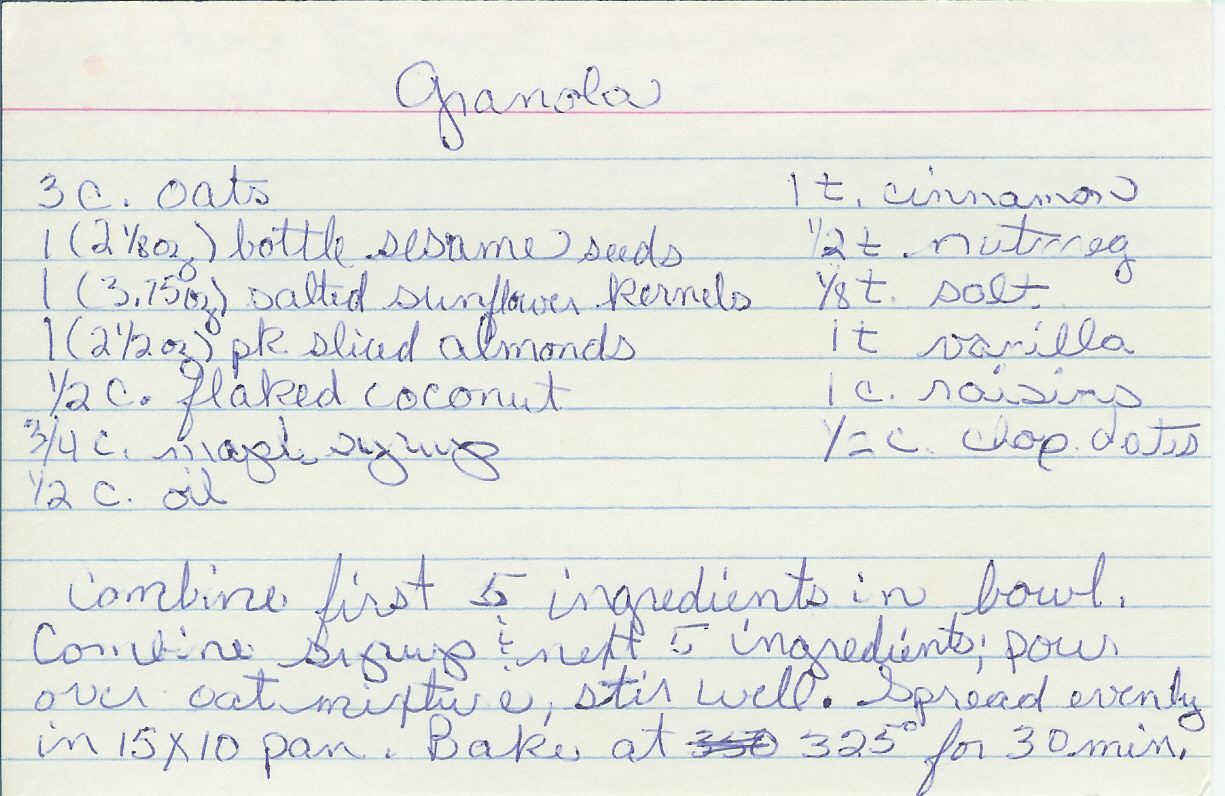 Granola
3 c. oats
1 (2 1/8 oz) bottle sesame seeds
1 (3.75 oz) salted sunflower kernels
1 (2 1/2 oz) pk sliced almonds
1/2 c. flaked coconut
3/4 c. maple syrup
1/2 c. oil
1 t. cinnamon
1/2 t. nutmeg
1/8 t. salt
1 t vanilla
1 c. raisins
1/2 c. chop. dates
Combine first 5 ingredients in bowl.
Combine syrup & next 5 ingredients; pour
over oat mixture, stir well. Spread evenly
in 15X10 pan. Bake at 350 325° for 30 min.